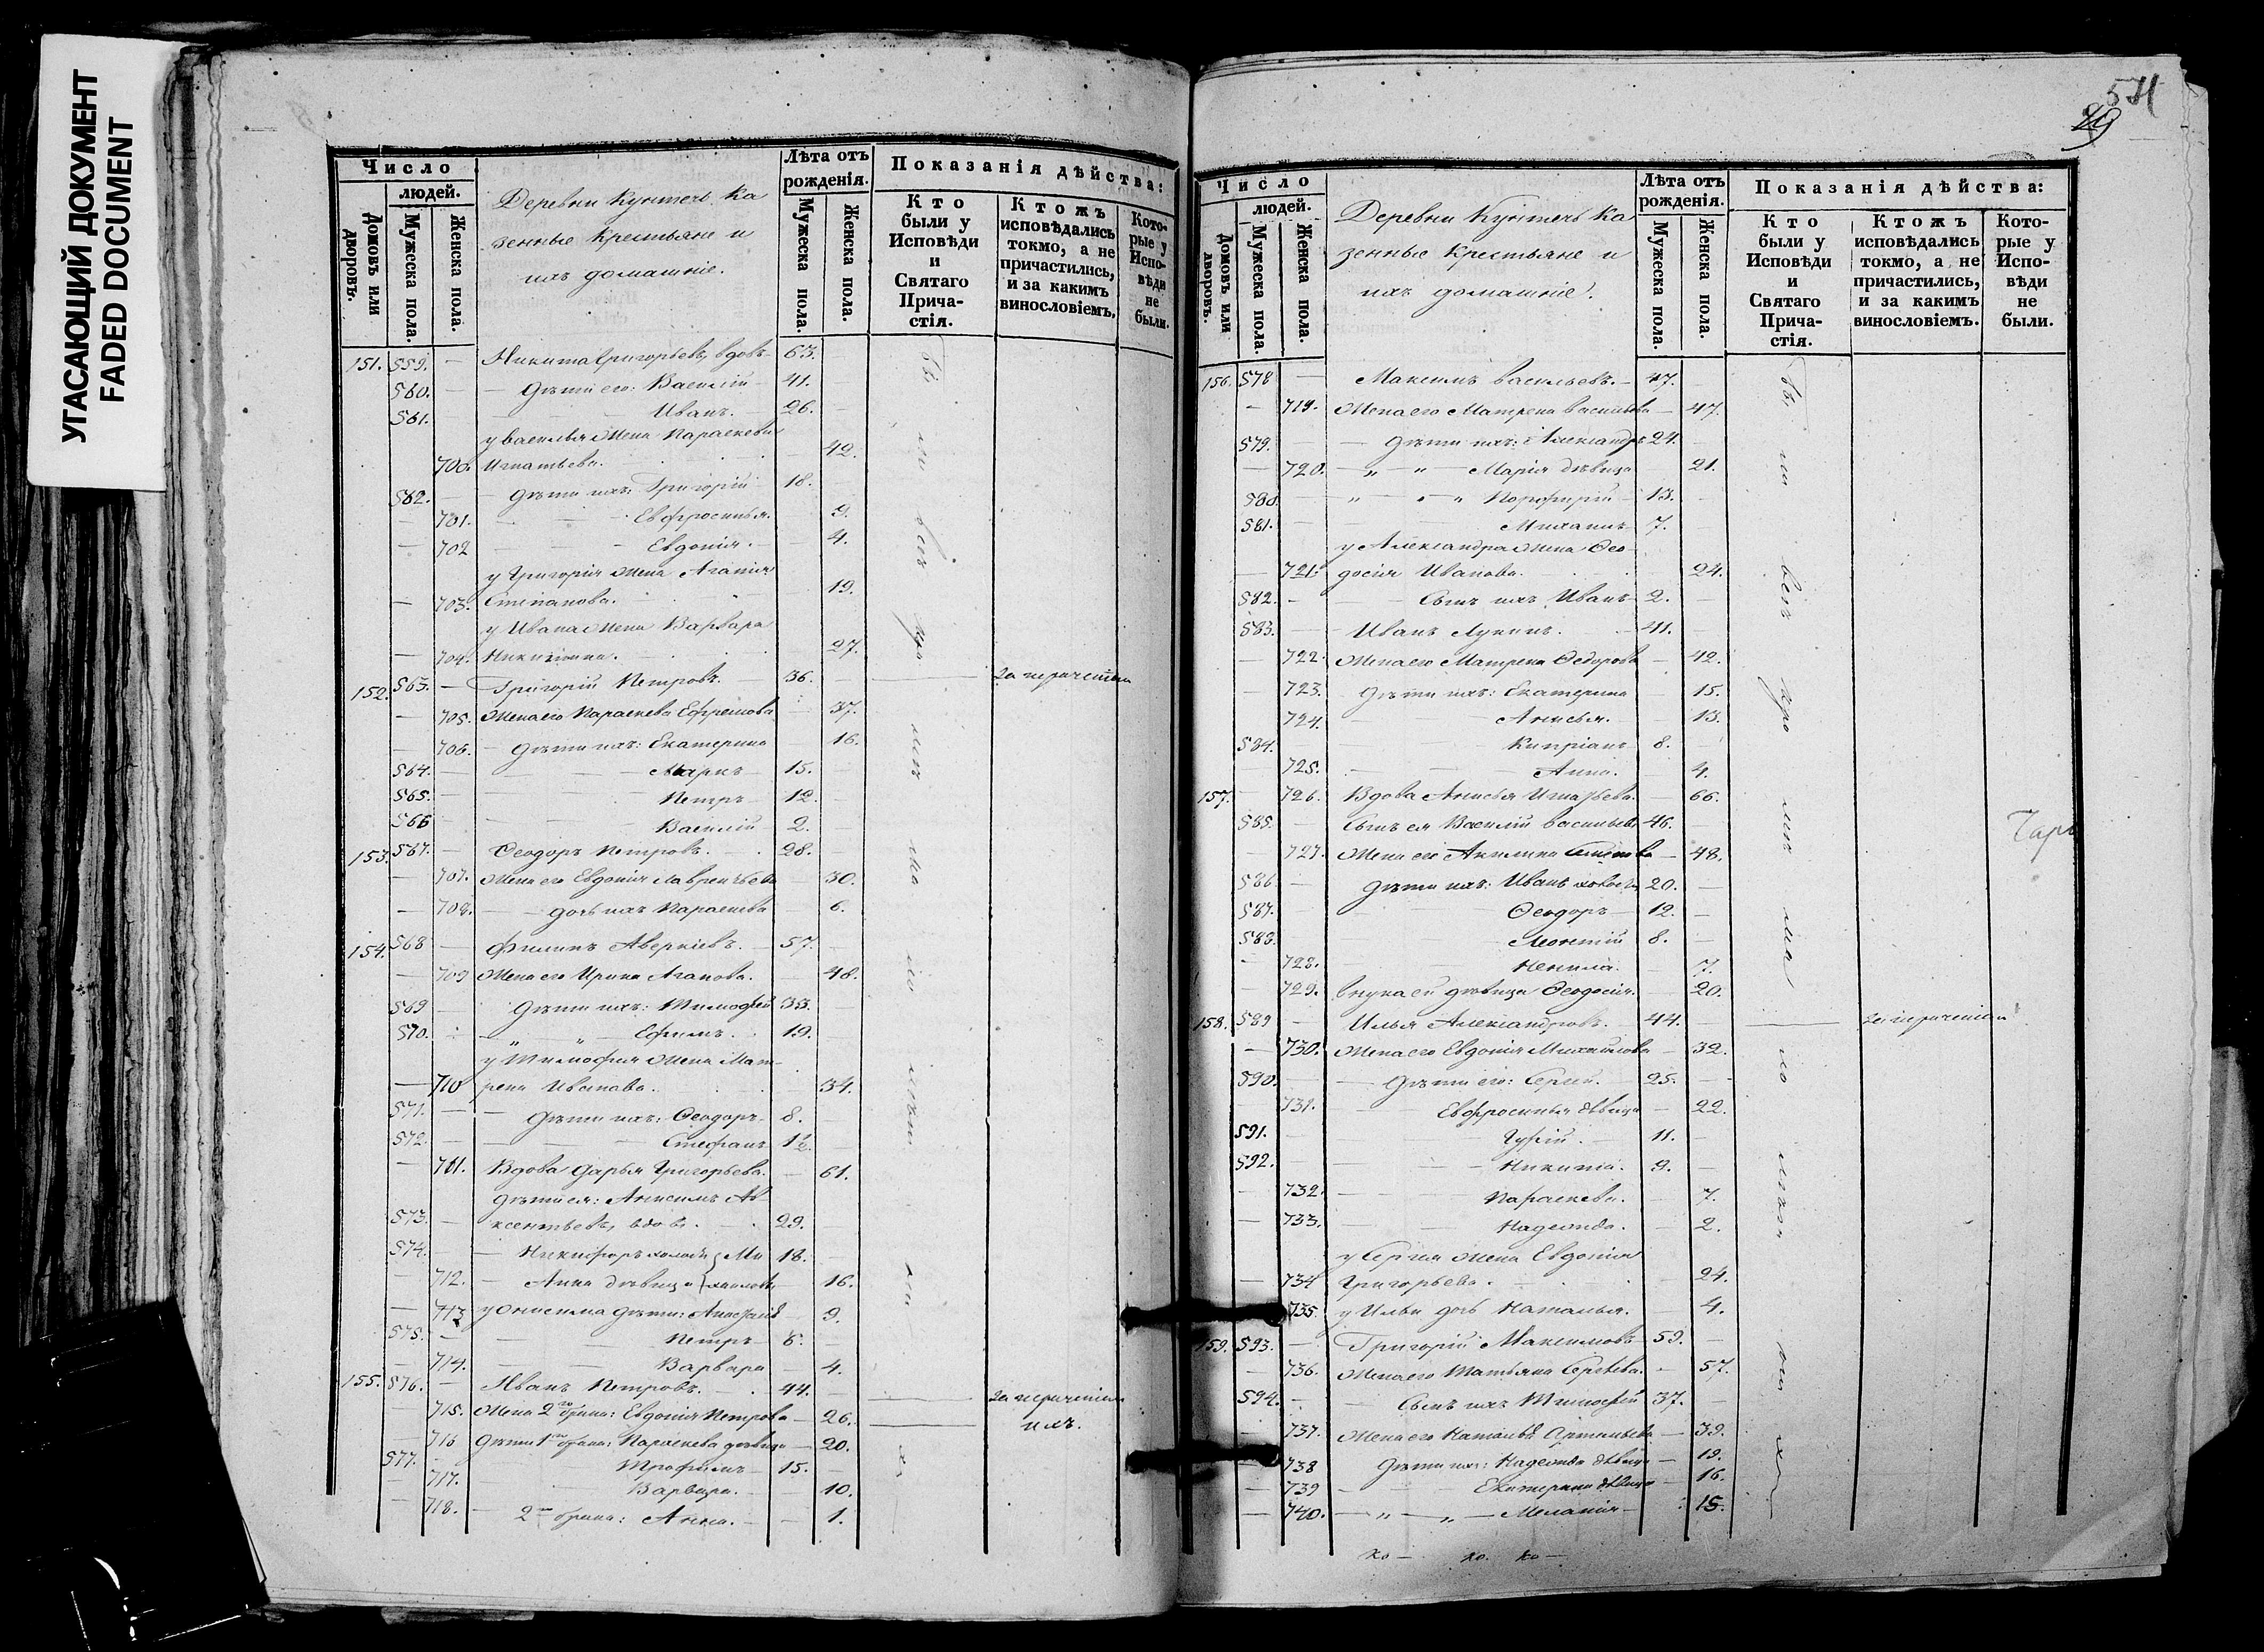 УГАСАЮЩИЙ ДОКУМЕНТ
FADED DOCUMENT
Число
людей.
Домовъ или дворовъ.
Мужеска пола.
Женска пола.
Деревни Кунтечь ка
зенные крестьяне и
ихъ домашніе.
Лѣта отъ рожденія.
Мужеска пола.
Женска пола.
Показанія дѣйства:
Кто были у Исповѣди и Святаго Причастія.
Ктожъ исповѣдались токмо, а не причастились, и за какимъ винословіемъ.
Которые у Исповѣди не были.
151. 559. — Никита Григорьевъ, вдовъ 63.
560. — Дѣти его: Василій 41.
561. Иванъ. 26.
у Василья жена Параскева
700. Игнатьева. 42.
562. Дѣти ихъ: Григорій 18.
701. Евфросинья. 9.
702 Евдокія. 4.
у Григорія жена Агапія
703. Степанова. 19.
у Ивана жена Варвара
704. Никитина. 27.
152. 563. — Григорій Петровъ. 36. —
705. Жена его Параскева Ефремова 37.
706. Дѣти ихъ: Екатерина 16.
564. Маркъ 15.
565. Петръ 12.
566 Василій 2.
153. 567. Ѳеодоръ Петровъ. 28.
707. Жена его Евдокія Лаврентьева 30.
708. дочь ихъ Параскева 6.
154. 568 Филипъ Аверкіевъ. 57.
709 Жена его Ирина Агапова. 48.
569 Дѣти ихъ: Тимофей 33.
570. „ „ Ефимъ. 19.
у Тимофея жена Мат-
710 рена Иванова. 34.
571. Дѣти ихъ: Ѳеодоръ 8.
572. Стефанъ 12.
711. Вдова Дарья Григорьева. 61.
Дѣти ея: Анисимъ Ав
573. ксентьевъ, вдовъ. 29.
574. Никифоръ 18.
712. Анна дѣвица 16.
713 у Онисима дѣти: 9.
575. Петръ 6.
714. Варвара 4.
155. 576. Иванъ Петровъ. 44.
715. Жена 2го брака: Евдокія Петрова 26.
ихъ.
716 Дѣти 1го брака: Параскева дѣвица 20.
577. Трофимъ 15.
717. Варвара. 10.
718. 2го брака: Анна. 1.
Число
людей.
Домовъ или дворовъ.
Мужеска пола.
Женска пола.
Деревни Кунтечь ка
зенные крестьяне и
ихъ домашніе.
Лѣта отъ рожденія.
Мужеска пола.
Женска пола.
Показанія дѣйства:
Кто были у Исповѣди и Святаго Причастія.
Ктожъ исповѣдались токмо, а не причастились, и за какимъ винословіемъ.
Которые у Исповѣди не были.
156. 578 Максимъ Васильевъ. 47.
719. Жена его Матрена Васильева 47.
579. Дѣти ихъ: Александръ 24.
720. „ „ Марія дѣвица 21.
580. „ „ Порфирій 13.
581. Михаилъ 7.
у Александра жена Ѳео-
721. досія Иванова. 24.
582. Сынъ ихъ Иванъ 2.
583. Иванъ Лукинъ. 41.
722. Жена его Матрена Ѳедорова 42.
723. Дѣти ихъ: Екатерина 15.
724. Анисья. 13.
584. Кипріанъ 8.
725. Анна. 4.
157. 726. Вдова Анисья Игнатьева. 66.
585. Сынъ ея Василій Васильевъ 46.
727. Жена его Акилина 48.
586. Дѣти ихъ: Иванъ 20.
587. Ѳеодоръ 12.
588. Леонтій 8.
728. Ненила. 7.
729. внука ей дѣвица Ѳеодосія. 20.
158. 589 Илья Александровъ. 44.
730. Жена его Евдокія Михайлова 32.
590. Дѣти его: Сергій. 25.
731. Евфросинья дѣвица 22.
591. Гурій. 11.
592. Никита. 9.
732. Параскева. 7.
733. Надежда. 2.
у Сергія жена Евдокія
734 Григорьева. 24.
735. у Ильи дочь Наталья. 4.
159. 593. Григорій Максимовъ 59.
736. Жена его Татьяна Сергѣева. 57.
594. Сынъ ихъ Тимофей 37.
737. Жена его Наталья Артемьева 39.
738 Дѣти ихъ: Надежда дѣвица 19.
739 Екатерина дѣвица 16.
740. „ „ Меланія 15.